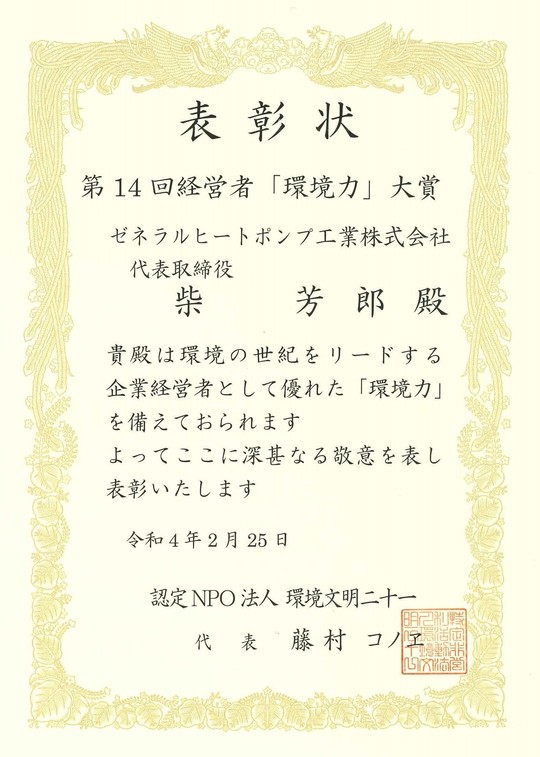 表彰状
第14回経営者「環境力」大賞
ゼネラルヒートポンプ工業株式会社
代表取締役
柴 芳郎 殿
貴殿は環境の世紀をリードする
企業経営者として優れた「環境力」
を備えておられます
よってここに深甚なる敬意を表し
表彰いたします
令和4年2月25日
認定NPO法人 環境文明二十一
代 表 藤村 コノヱ